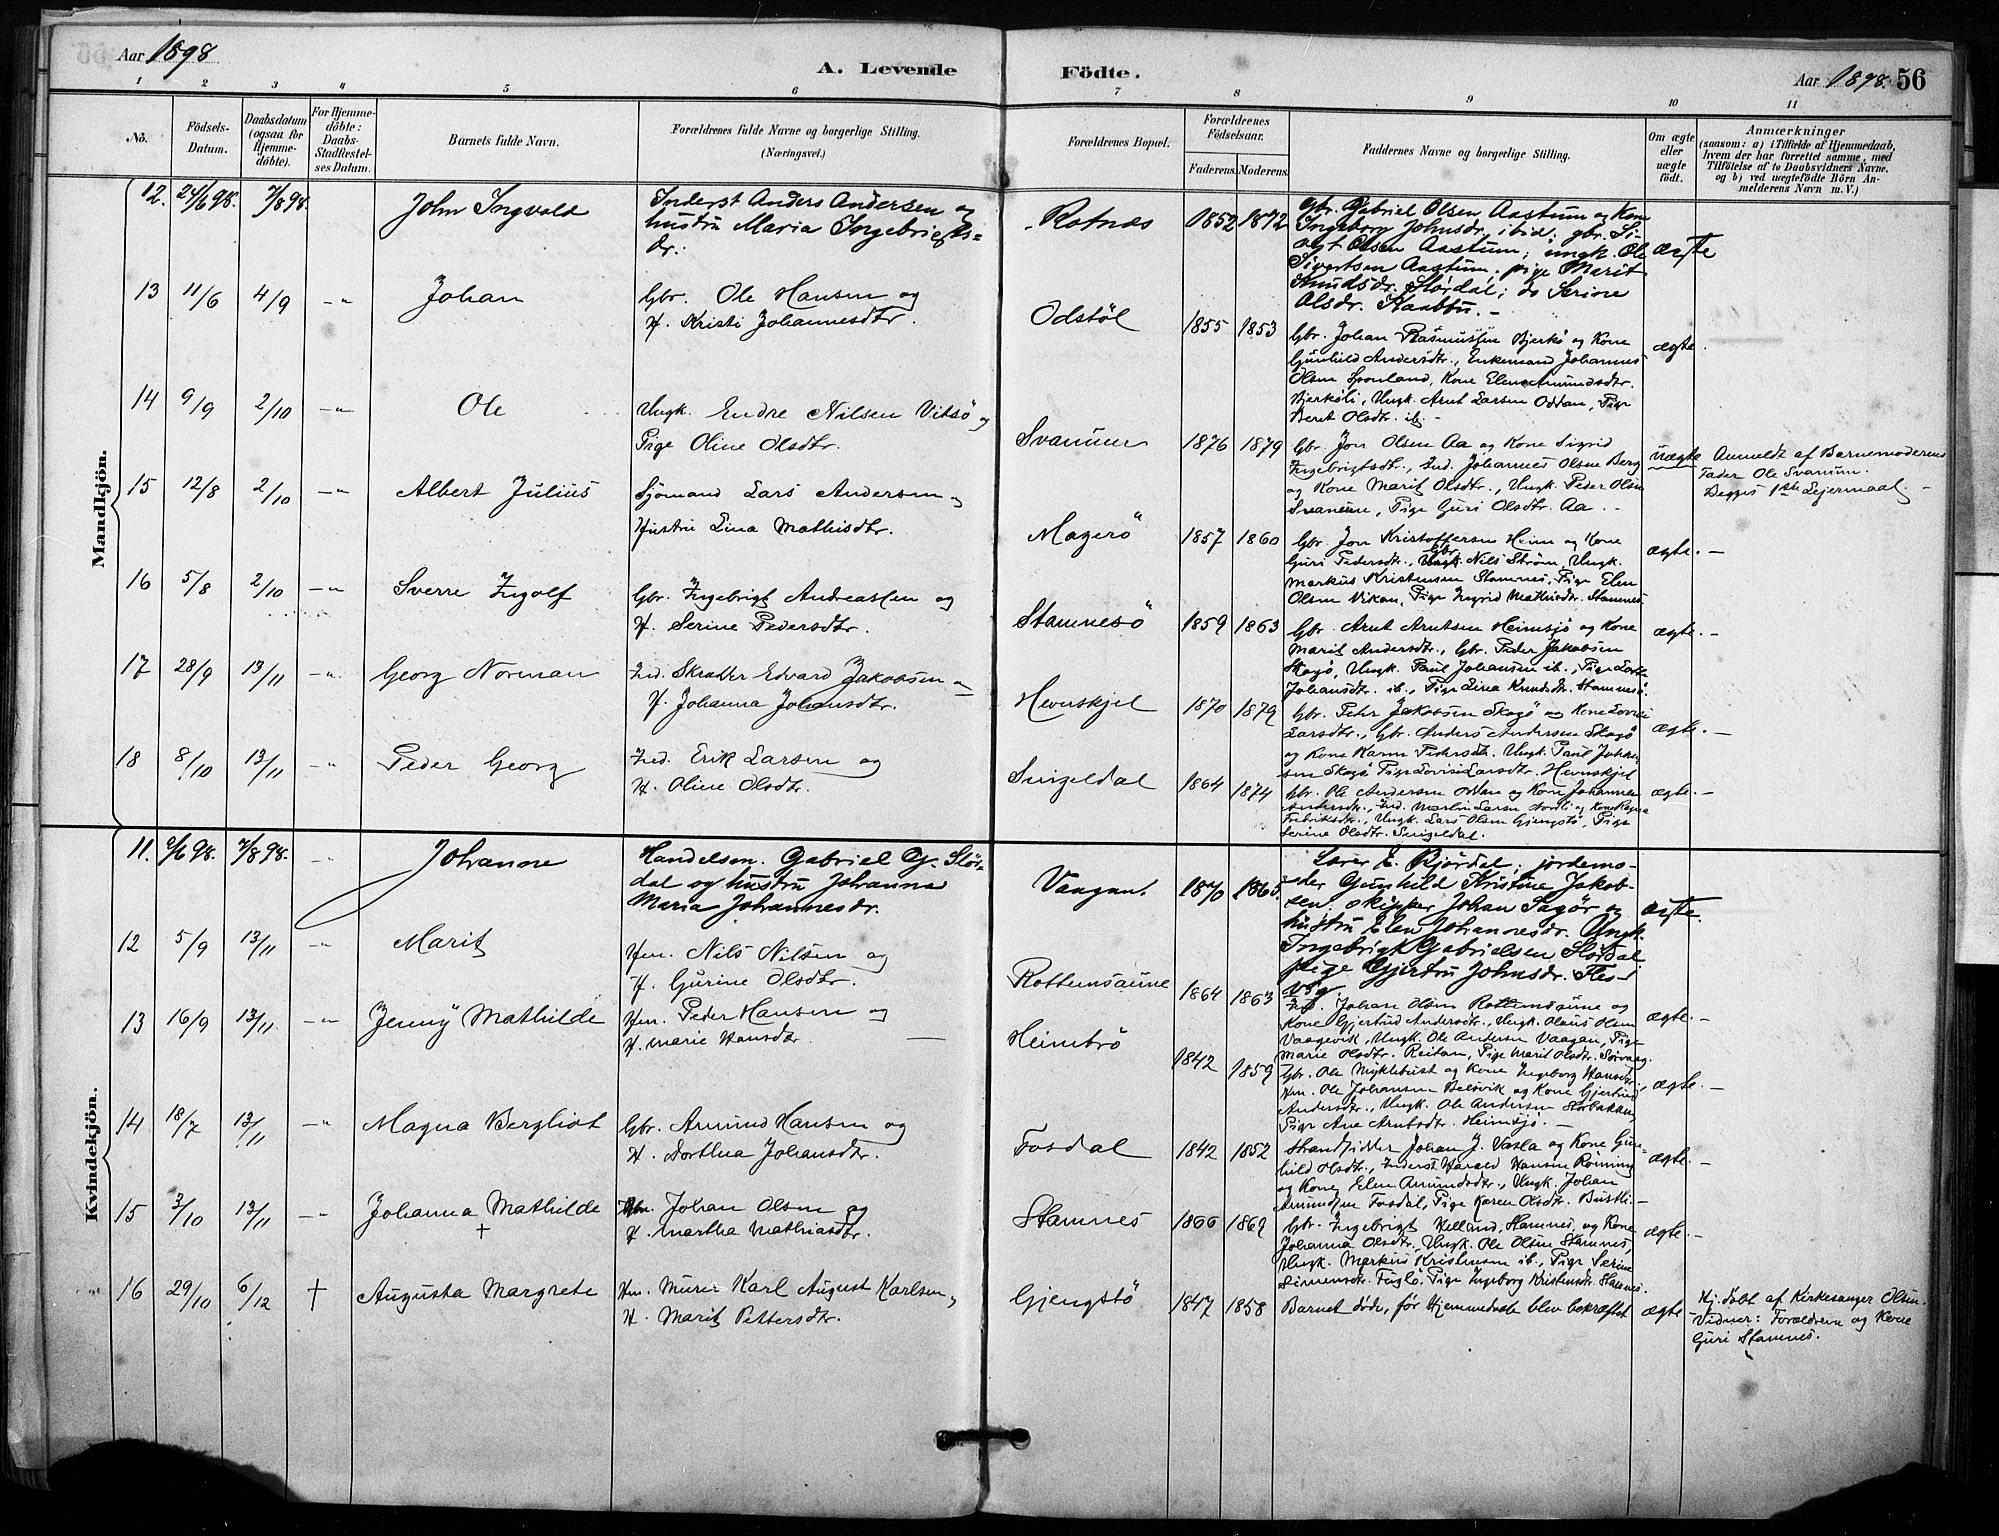 Aar 1898
A. Levende
Födte.
Aar 1898. 56
1 2 3 4 5 6 7 8 9 10 11
No.
Födsels-
Datum.
Daabsdatum
(ogsaa for
Hjemme-
döbte).
For Hjemme-
döbte:
Daabs-
Stadfæstel-
ses Datum.
Barnets fulde Navn.
Forældrenes fulde Navne og borgerlige Stilling.
(Næringsvei.)
Forældrenes Bopæl.
Forældrenes
Födselsaar.
Faderens. Moderens.
Faddernes Navne og borgerlige Stilling.
Om ægte
eller
uægte
födt.
Anmærkninger
(saasom: a) i Tilfælde af Hjemmedaab,
hvem der har forrettet samme, med
Tilföielse af to Daabsvidners Navne,
og b) ved uægtefödte Börn An-
melderens Navn m. V.)
Mandkjön.
12. 24/6 98. 7/8 98. John Ingvald
Inderst Anders Andersen og
hustru Maria Ingebrigts-
dr.
Rotnes 1852 1872
Gbr. Gabriel Olsen Aastum og Kone
Ingeborg Johnsdr. ibid. gbr. Si-
vert Olsen Aastum; ungk. Ole
Sivertsen Aastum. pige Marit
Knudsdr. Stördal; do Serine
Olsdr.
ægte
13 11/6 4/9 -"- Johan
Gbr. Ole Hansen og
H. Kristi Johannesdtr.
Odstöl 1855 1853
Gbr. Johan Rasmussen Bjerkö og Kone
Gunhild Andersdtr., Enkemand Johannes
Olsen, Kone Elen Amundsdtr.
Bjerköli, Ungk. Arnt Larsen Oddan, Pige
Beret Olsdtr. ib. -
ægte.
14 9/9 2/10 -"- Ole
Ungk. Endre Nilsen Vitsö og
Pige Oline Olsdtr.
Svanum 1876 1879
Gbr. Jon Olsen Aa og Kone Sigrid
Ingebrigtsdtr., Ind. Johannes Olsen Berg
og Kone Marit Olsdtr., Ungk. Peder Olsen
Svanum, Pige Guri Olsdtr. Aa. -
uægte
Anmeldt af Barnemoderens
Fader Ole Svanum.
Begges 1ste Leiermaal. -
15 12/8 2/10 -"- Albert Julius
Sjömand Lars Andersen og
Hustru Lina Mathisdtr.
Magerö 1857 1860
Gbr. Jon Kristoffersen Heim og Kone
Guri Pedersdtr., Gbr. Nils Ström, Ungk.
Markus Kristensen Stamnes, Pige Elen
Olsen Vikan, Pige Ingrid Mathisdtr. Stamnes
ægte. -
16 5/8 2/10 -"- Sverre Ingolf
Gbr. Ingebrigt Andreassen og
H. Serine Pedersdtr.
Stamnesö 1859 1863
Gbr. Arnt Arntsen Heimsjö og Kone
Marit Andersdtr., Gbr. Peder Jakobsen
Skogö, Ungk. Paul Johansen ib., Pige
Johansdtr. ib., Pige Lina Knudsdtr. Stamnesö.
ægte. -
17 28/9 13/11 -"- Georg Norman
Ind. Skrædder Edvard Jakobsen og
H. Johanna Johansdtr.
Hevnskjel 1870 1879
Gbr. Peter Jakobsen Skogö og Kone Lovise
Larsdtr., Gbr. Anders Andersen Skogö
og Kone Karen Pedersdtr. Ungk. Paul Johan-
sen Skogö Pige Lovise Larsdtr. Hevnskjel
ægte. -
18 8/10 13/11 -"- Peder Georg
Ind. Erik Larsen og
H. Oline Olsdtr.
Svigeldal 1864 1874
Gbr. Ole Andersen Oddan og Kone Johanna
Andersdtr., Ind. Martin Larsen Nordli og Kone Ragna
Fredriksdtr., Ungk. Lars Olsen Gjengstö, Pige
Serine Olsdtr. Svigeldal.
ægte. -
Kvindekjön.
11. 6/6 98. 7/8 98. -"- Johanne
Handelsm. Gabriel G. Stör-
dal og hustru Johanna
Maria Johannesdr.
Vaagan. 1870 1865.
Lærer E. Bjørdal; jordemo-
der Gunhild Kristine Jakob-
sen. skipper Johan Sagör og
hustru Elen Johannesdr. Ungk.
Ingebrigt Gabrielsen Stördal
pige Gjertru Johnsdr. Fles-
vig.
ægte.
12 5/9 13/11 -"- Marit
Hm. Nils Nilsen og
H. Gurine Olsdtr.
Rottemsaune 1864 1863
Ind. Johan Olsen Rottemsaune og
Kone Gjertrud Andersdtr., Ungk. Olaus Olsen
Vaagevik, Ungk. Ole Andersen Vaagan, Pige
Marie Olsdtr. Reitan, Pige Marit Olsdtr. Sörvaag.
ægte. -
13 16/9 13/11 -"- Jenny Mathilde
Hm. Peder Hansen og
H. Marie Hansdtr.
Heimbrö 1842 1859
Gbr. Ole Myklebust og Kone Ingeborg Hansdtr.,
Hm. Ole Johansen Belsvik og Kone Gjertrud
Andersdtr., Ungk. Ole Andersen Storbakken,
Pige Ane Arntsdtr. Heimsjö. -
ægte. -
14 18/7 13/11 -"- Magna Bergliot
Gbr. Amund Hansen og
H. Dorthea Johansdtr.
Fosdal 1842 1852
Strandsidder Johan J. Vasla og Kone Gun-
hild Olsdtr., Inderst Harald Hansen Röning
og Kone Elen Amundsdtr., Ungk. Johan
Amundsen Fosdal, Pige Karen Olsdtr. Bustli -
ægte. -
15 3/10 13/11 -"- Johanna Mathilde
+
Hm. Johan Olsen og
H. Martha Mathiasdtr.
Stamnes 1866 1869
Gbr. Ingebrigt Stamnes, og Kone
Johanna Olsdtr., Ungk. Ole Olsen Stamnes,
Ungk. Markus Kristensen ib., Pige Serine
Simensdtr. Fuglö, Pige Ingeborg Kristensdtr. Stamnes.
ægte. -
16 29/10 6/12 + Augusta Margrete
Hm. Murer Karl August Karlsen og
H. Marit Pettersdtr.
Gjengstö 1847 1858
Barnet döde, för Hjemmedaab blev bekræftet
ægte
Hj. döbt af Kirkesanger Olsen.
Vidner: Forældrene og Kone
Guri Stamnes.